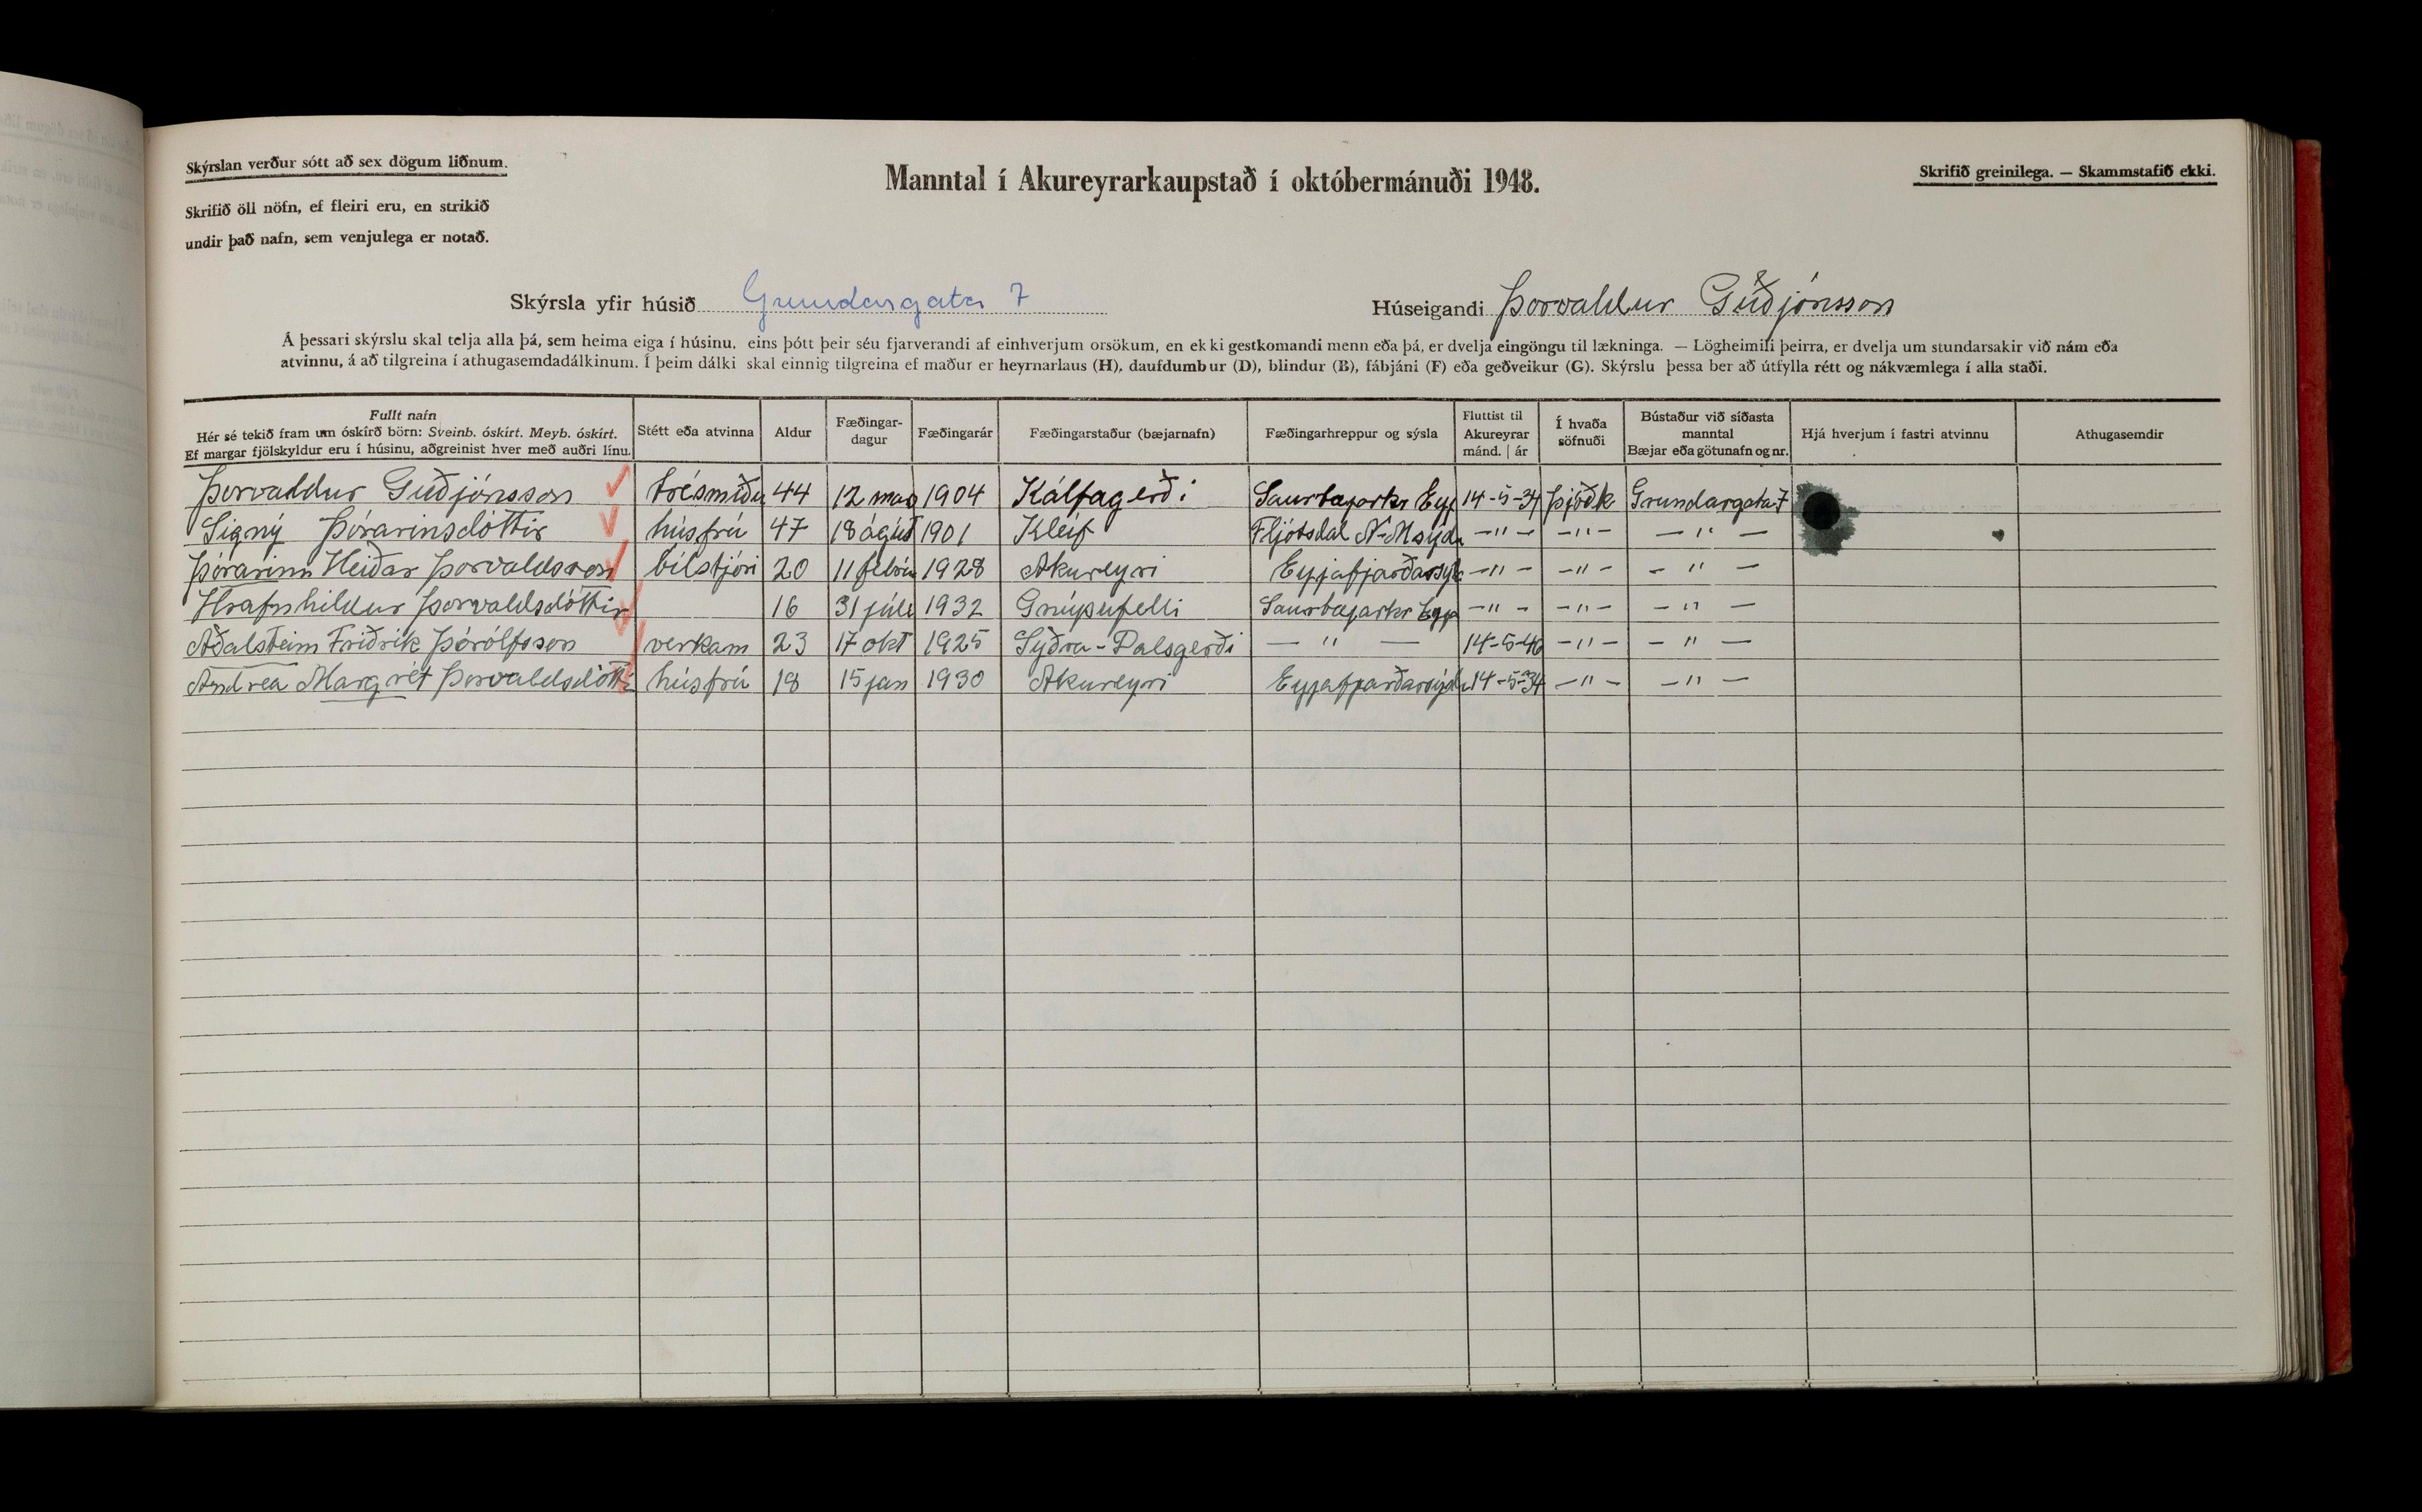 Skýrslan verður sótt að sex dögum liðnum.
Skrifið öll nöfn, ef fleiri eru, en strikið
undir það nafn, sem venjulega er notað.
Manntal í Akureyrarkaupstað í októbermánuði 1948.
Skrifið greinilega. — Skammstafið ekki.
Skýrsla yfir húsið Grundargata 7
Húseigandi Þorvaldur Guðjónsson
Á þessari skýrslu skal telja alla þá, sem heima eiga í húsinu, eins þótt þeir séu fjarverandi af einhverjum orsökum, en ekki gestkomandi menn eða þá, er dvelja eingöngu til lækninga. — Lögheimili þeirra, er dvelja um stundarsakir við nám eða
atvinnu, á að tilgreina í athugasemdadálkinum. Í þeim dálki skal einnig tilgreina ef maður er heyrnarlaus (H), daufdumbur (D), blindur (B), fábjáni (F) eða geðveikur (G). Skýrslu þessa ber að útfylla rétt og nákvæmlega í alla staði.
Fullt nafn
Hér sé tekið fram um óskírð börn: Sveinb. óskírt. Meyb. óskírt.
Ef margar fjölskyldur eru í húsinu, aðgreinist hver með auðri línu.
Stétt eða atvinna
Aldur
Fæðingar-
dagur
Fæðingarár
Fæðingarstaður (bæjarnafn)
Fæðingarhreppur og sýsla
Fluttist til
Akureyrar
mánd. | ár
Í hvaða
söfnuði
Bústaður við síðasta
manntal
Bæjar eða götunafn og nr.
Hjá hverjum í fastri atvinnu
Athugasemdir
Þorvaldur Guðjónsson trésmiðu 44 12 mar 1904 Kálfagerði Saurbæjarhr Eyf 14-5-34 Þjóðk Grundargata 7
Signý Þórarinsdóttir húsfrú 47 18 ágúst 1901 Kleif Fljótsdal N-Msýslu —"— —"— —"—
Þórarinn Heiðar Þorvaldsson bílstjóri 20 11 febrú 1928 Akureyri Eyjafjarðarsýs —"— —"— —"—
Hrafnhildur Þorvaldsdóttir 16 31 júlí 1932 Gnúpufelli Saurbæjarhr Eyf —"— —"— —"—
Aðalsteinn Friðrik Þórólfsson verkam 23 17 okt 1925 Syðra-Dalsgerði —"— 14-5-46 —"— —"—
Andrea Margrét Þorvaldsdótti húsfrú 18 15 jan 1930 Akureyri Eyjafjarðarsýslu 14-5-34 —"— —"—